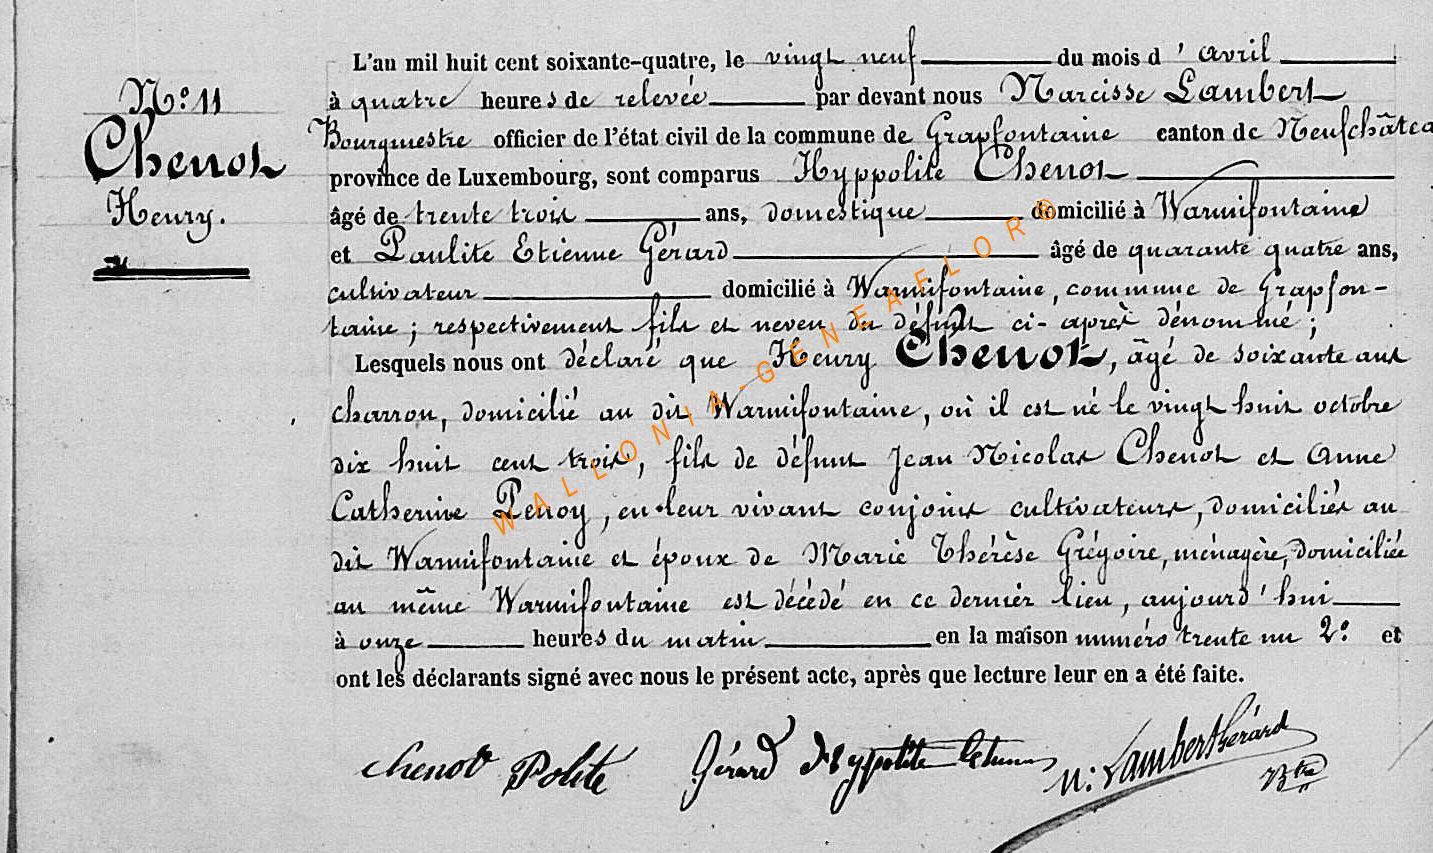 N.° 11
Chenot
Henry.
L'an mil huit cent soixante-quatre, le vingt neuf du mois d'avril
à quatre heures de relevée par devant nous Narcisse Lambert
Bourgmestre officier de l'état civil de la commune de Grapfontaine canton de Neufchâtea
province de Luxembourg, sont comparus Hyppolite Chenot
âgé de trente trois ans, domestique domicilié à Warmifontaine
et Paulite Etienne Gérard âgé de quarante quatre ans,
cultivateur domicilié à Warmifontaine, commune de Grapfon-
taine ; respectivement fils et neveu du défunt ci-après dénommé ;
Lesquels nous ont déclaré que Henry Chenot, âgé de soixante ans
charron, domicilié au dit Warmifontaine, où il est né le vingt huit octobre
dix huit cent trois, fils de défunt Jean Nicolas Chenot et Anne
Catherine Penoy, en leur vivant conjoins cultivateurs, domiciliés au
dit Warmifontaine et époux de Marie Thérèse Grégoire, ménagère, domiciliée
au même Warmifontaine est décédé en ce dernier lieu, aujourd'hui
à onze heures du matin en la maison numéro trente un 2° et
ont les déclarants signé avec nous le présent acte, après que lecture leur en a été faite.
chenot Polite Gérard Hyppolite Etienne N: Lambert Gérard
Btre
WALLONIA-GENEAFLOR®